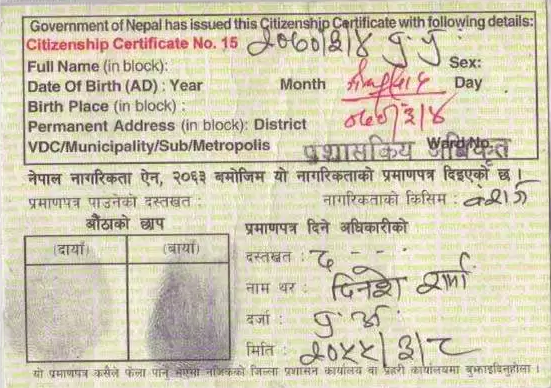 Government of Nepal has issued this Citizenship Certificate with following details:
Citizenship Certificate No. 15 २०६०/३/४ प्र. अ.
Full Name (in block): Sex:
Date Of Birth (AD) : Year Month Day
Birth Place (in block) : ०६०/३/४
Permanent Address (in block): District
VDC/Municipality/Sub/Metropolis Ward No.
प्रशासकिय अधिकृत
नेपाल नागरिकता ऐन, २०६३ बमोजिम यो नागरिकताको प्रमाणपत्र दिइएको छ ।
प्रमाणपत्र पाउनेको दस्तखत : नागरिकताको किसिम : वंशज
औंठाको छाप प्रमाणपत्र दिने अधिकारीको
(दायाँ) (बायाँ) दस्तखत :
नाम थर : दिनेश शर्मा
दर्जा : प्र. अ.
मिति : २०५५/३/८
यो प्रमाणपत्र कसैले फेला पारे नजिकको जिल्ला प्रशासन कार्यालय वा प्रहरी कार्यालयमा बुझाइदिनुहोला ।